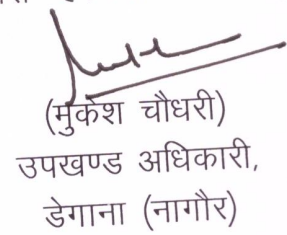 (मुकेश चौधरी)
उपखण्ड अधिकारी,
डेगाना (नागौर)